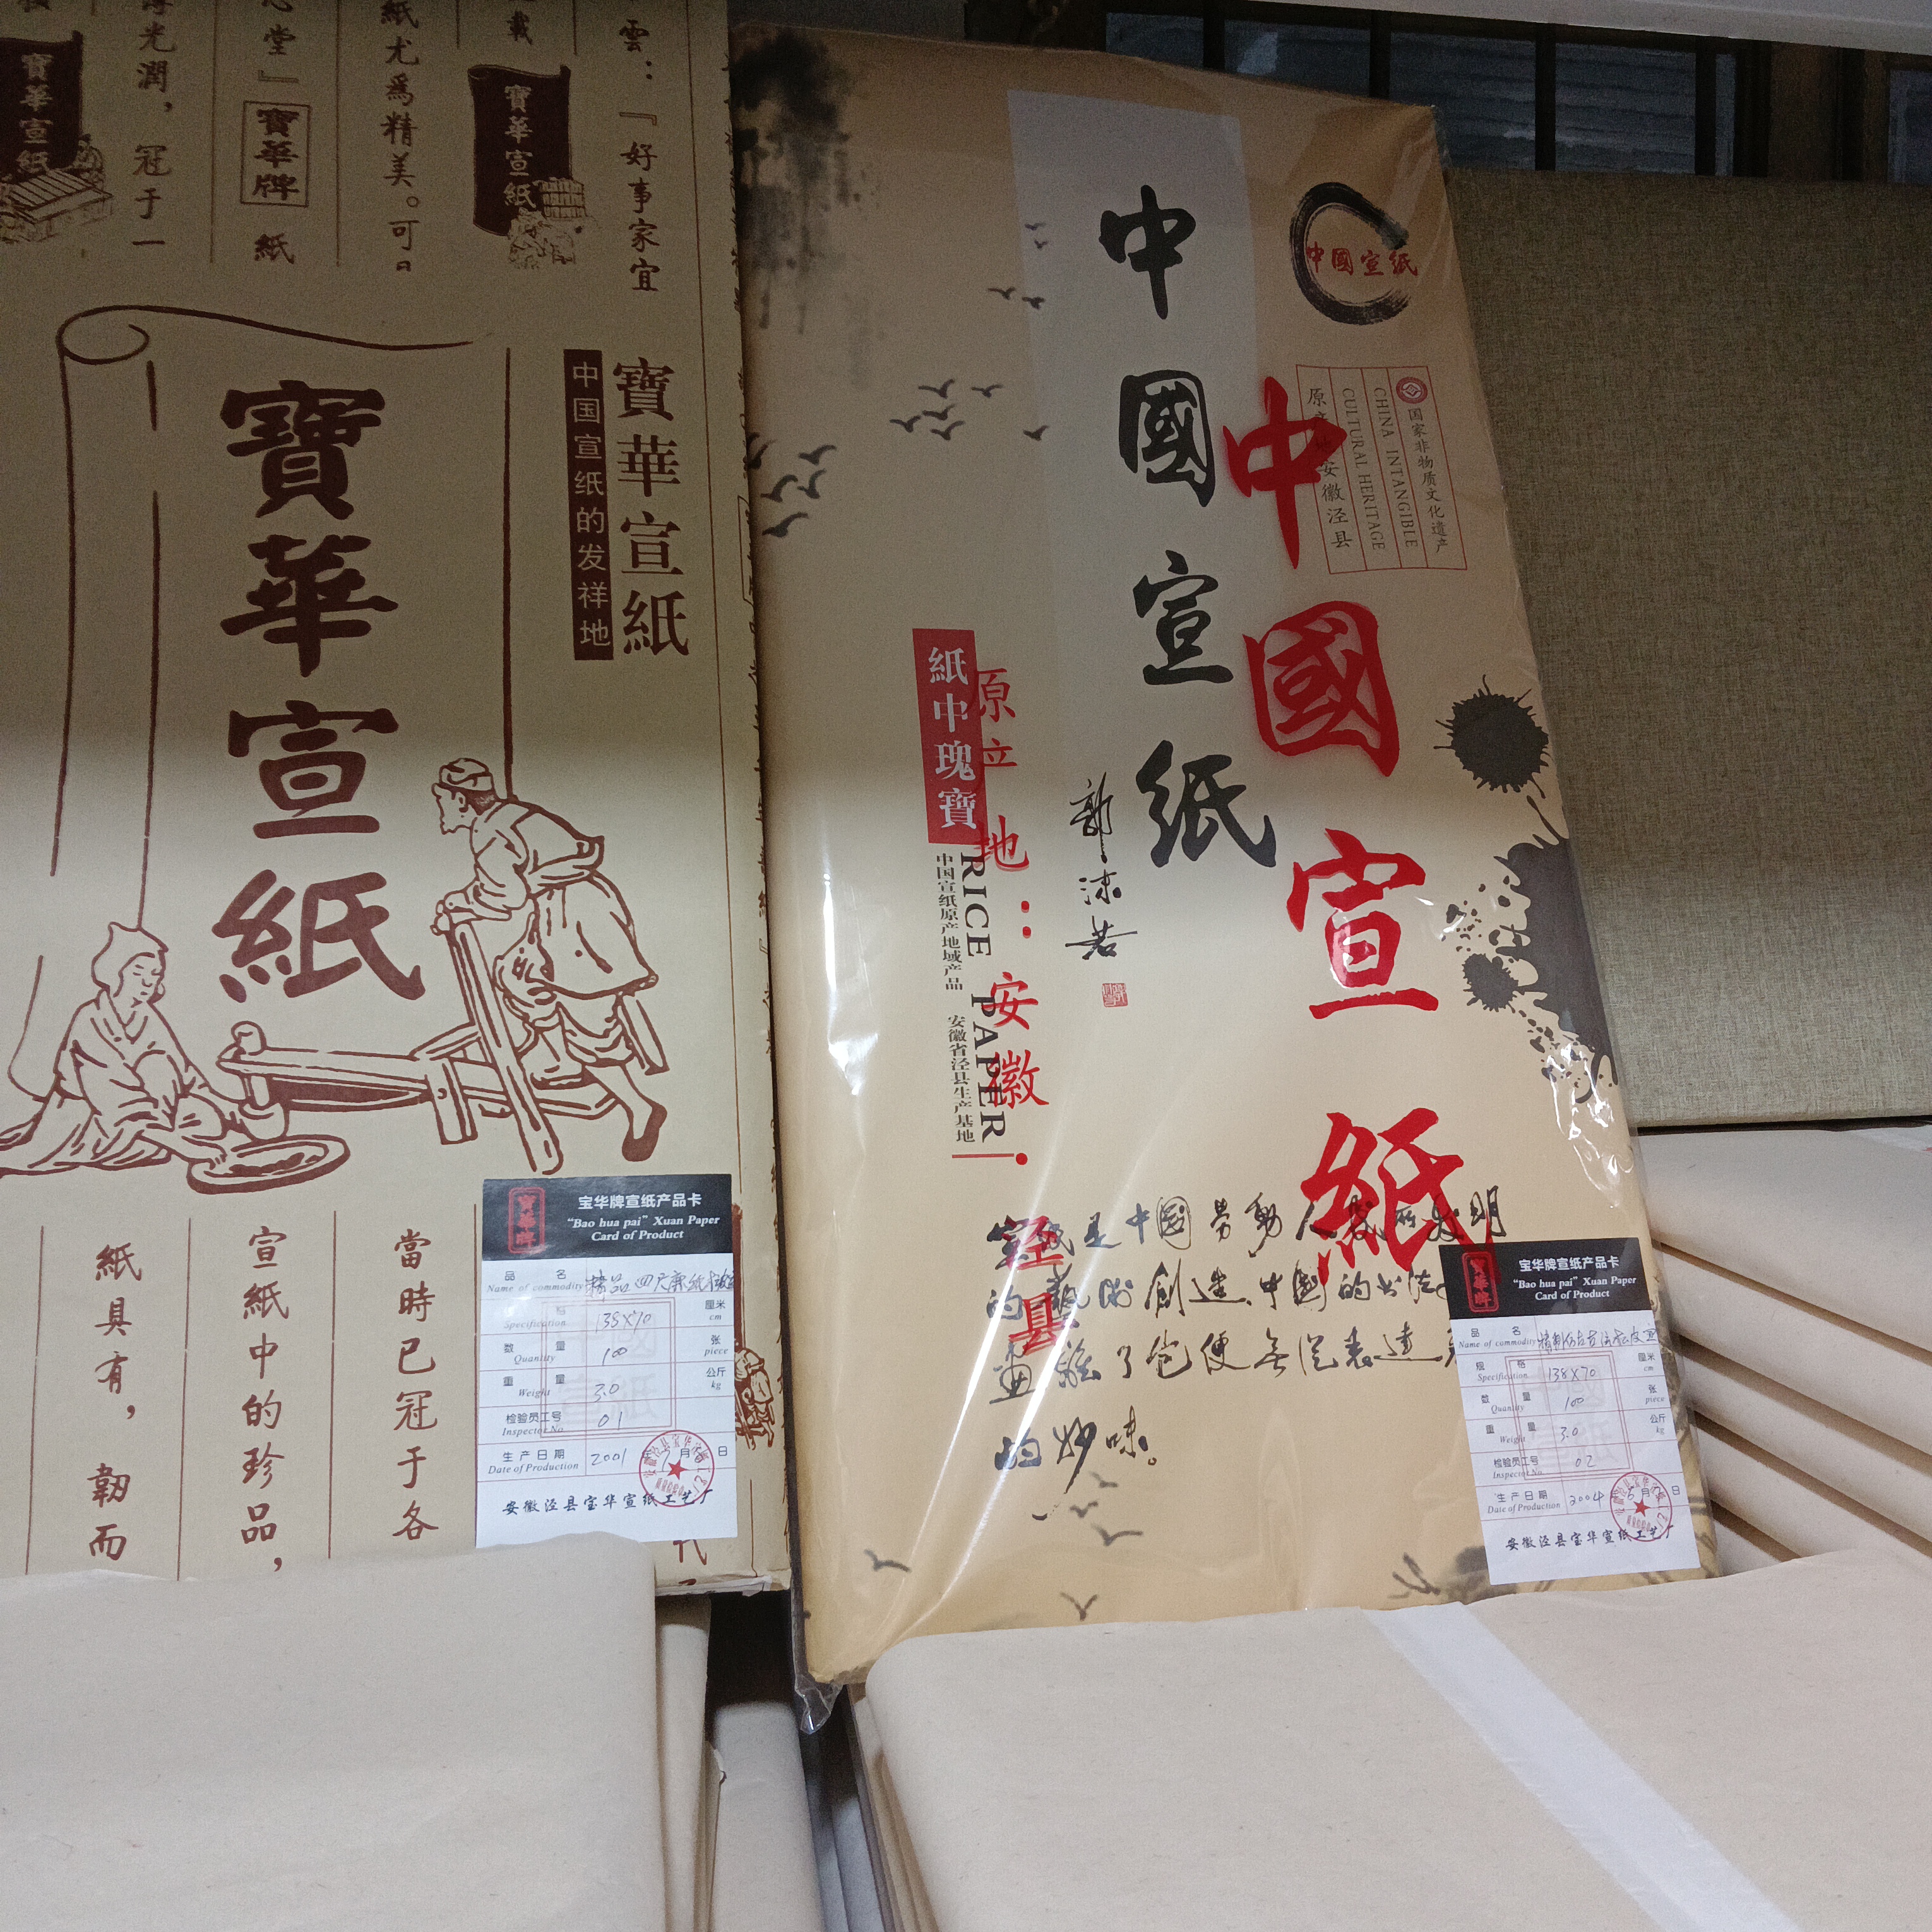 雲：『好事家宜
載
寶華宣紙
紙尤爲精美。可
堂』寶華牌 紙
光潤，冠于一
寶華宣紙
寶華宣紙
中国宣纸的发祥地
寶華宣紙
當時已冠于各
宣紙中的珍品，
紙具有，韌而
宝华牌宣纸产品卡
“Bao hua pai” Xuan Paper
Card of Product
寶華牌
品 名
Name of commodity
精品四尺
格
Specification
138X70
厘米
cm
数 量
Quantity
100
张
piece
重 量
Weight
3.0
公斤
kg
检验员工号
Inspector No
01
生产日期
Date of Production
2001
月
日
安徽泾县宝华宣纸工艺厂
中國宣纸
国家非物质文化遗产
CHINA INTANGIBLE
CULTURAL HERITAGE
安徽泾县
中國宣紙
中國宣纸
郭沫若
紙中瑰寶
原产地：安徽
泾县
RICE PAPER
中国宣纸原产地域产品 安徽省泾县生产基地
宣纸是中國劳動人民所发明
的藝術創造，中國的书法
畫離了它便无从表達
的妙味。
宝华牌宣纸产品卡
“Bao hua pai” Xuan Paper
Card of Product
寶華牌
品 名
Name of commodity
规 格
Specification
138X70
厘米
cm
数 量
Quantity
100
张
piece
重 量
Weight
3.0
公斤
kg
检验员工号
Inspector No
02
生产日期
Date of Production
2004
5月
日
安徽泾县宝华宣纸工艺厂